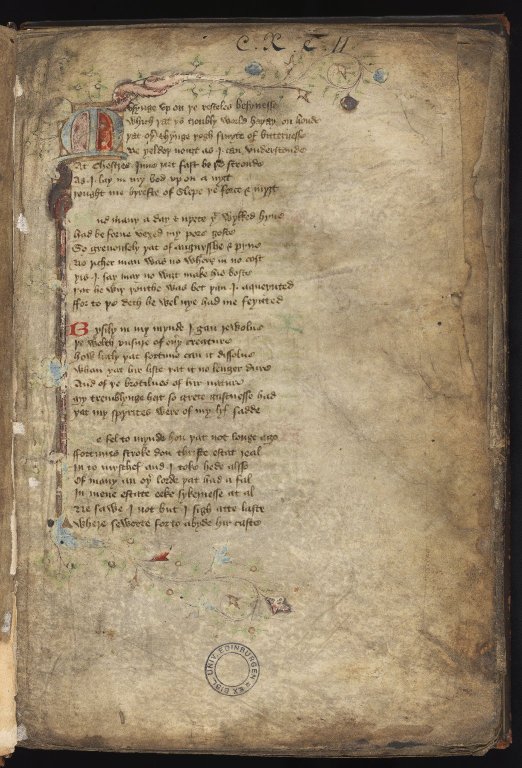 C. R. T. 11
Thynge vp on þe restles besynesse
Which þat þis troubly world haþ ay on honde
þat oþer thynge þogh fruyt of bitternesse
Ne yeldeþ nought as I can vnderstonde
At Chestres Inne right fast be þe stronde
As I lay in my bed vp on a nyȝt
þought me byrefte of slepe þe force & myȝt
nd many a day & nyȝte þat wykked hyne
had be forne vexed my pore goste
So greuously þat of anguysshe & pyne
No richer man was no where in no cost
þis I say may no wiȝt make his boste
þat he wiþ þouthe was bet þan I aqueynted
ffor to þe deth he wel nye had me feynted
Bysily in my mynde I gan reuolue
þe welth vnsure of euy creature
how liȝtly þat fortune can it dissolue
whan þat hir liste þat it no lenger dure
And of þe brotilnes of hir nature
My tremblynge hert so grete gastnesse had
þat my spyrites were of my lyf sadde
e fel to mynde how þat not longe ago
ffortunes stroke don thriste estat real
In to myschef and I toke hede also
Of many an oþer lorde þat had a fal
In mene estate eeke sykernesse at al
Ne sawe I not but I sigh atte laste
Where seweree for to abyde hir caste
UNIV. EDINBURGEN. EX BIBL.